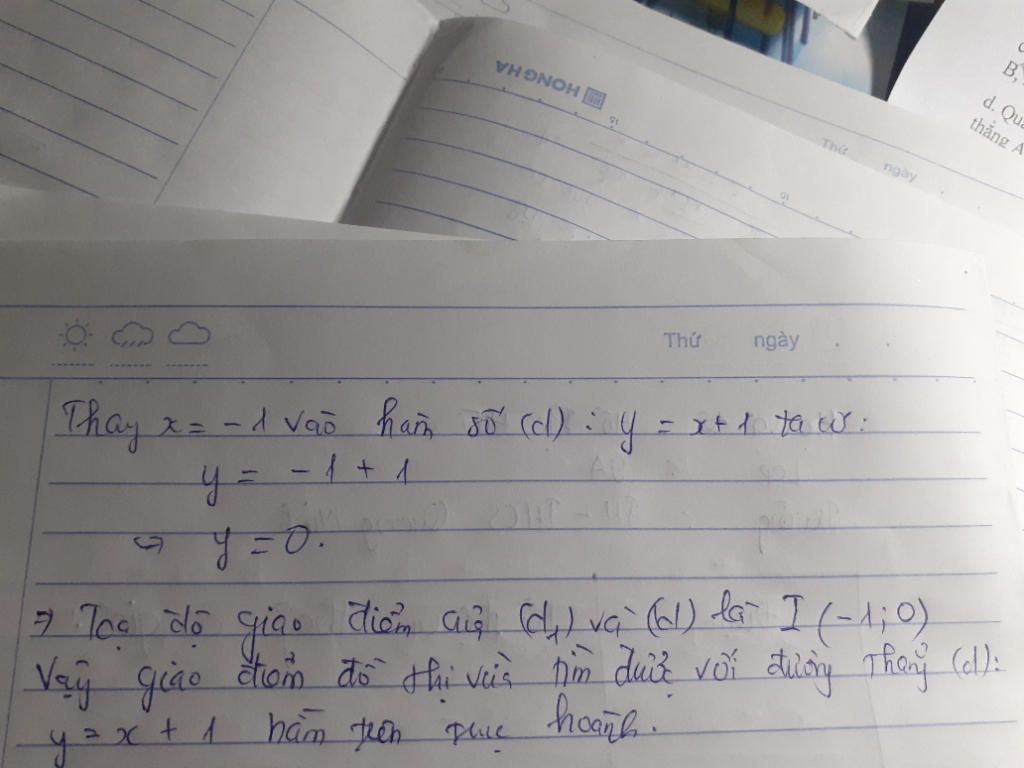 HONG HA
15
10
Thứ ngày
B,
d. Qu
thẳng A
Thứ ngày
Thay x = -1 vào hàm số (d) : y = x+1 ta có:
y = -1 + 1
y = 0.
⇒ Toạ độ giao điểm của (d1) và (d) là I (-1; 0)
Vậy giao điểm đồ thị vừa tìm được với đường thẳng (d):
y = x + 1 nằm trên trục hoành.